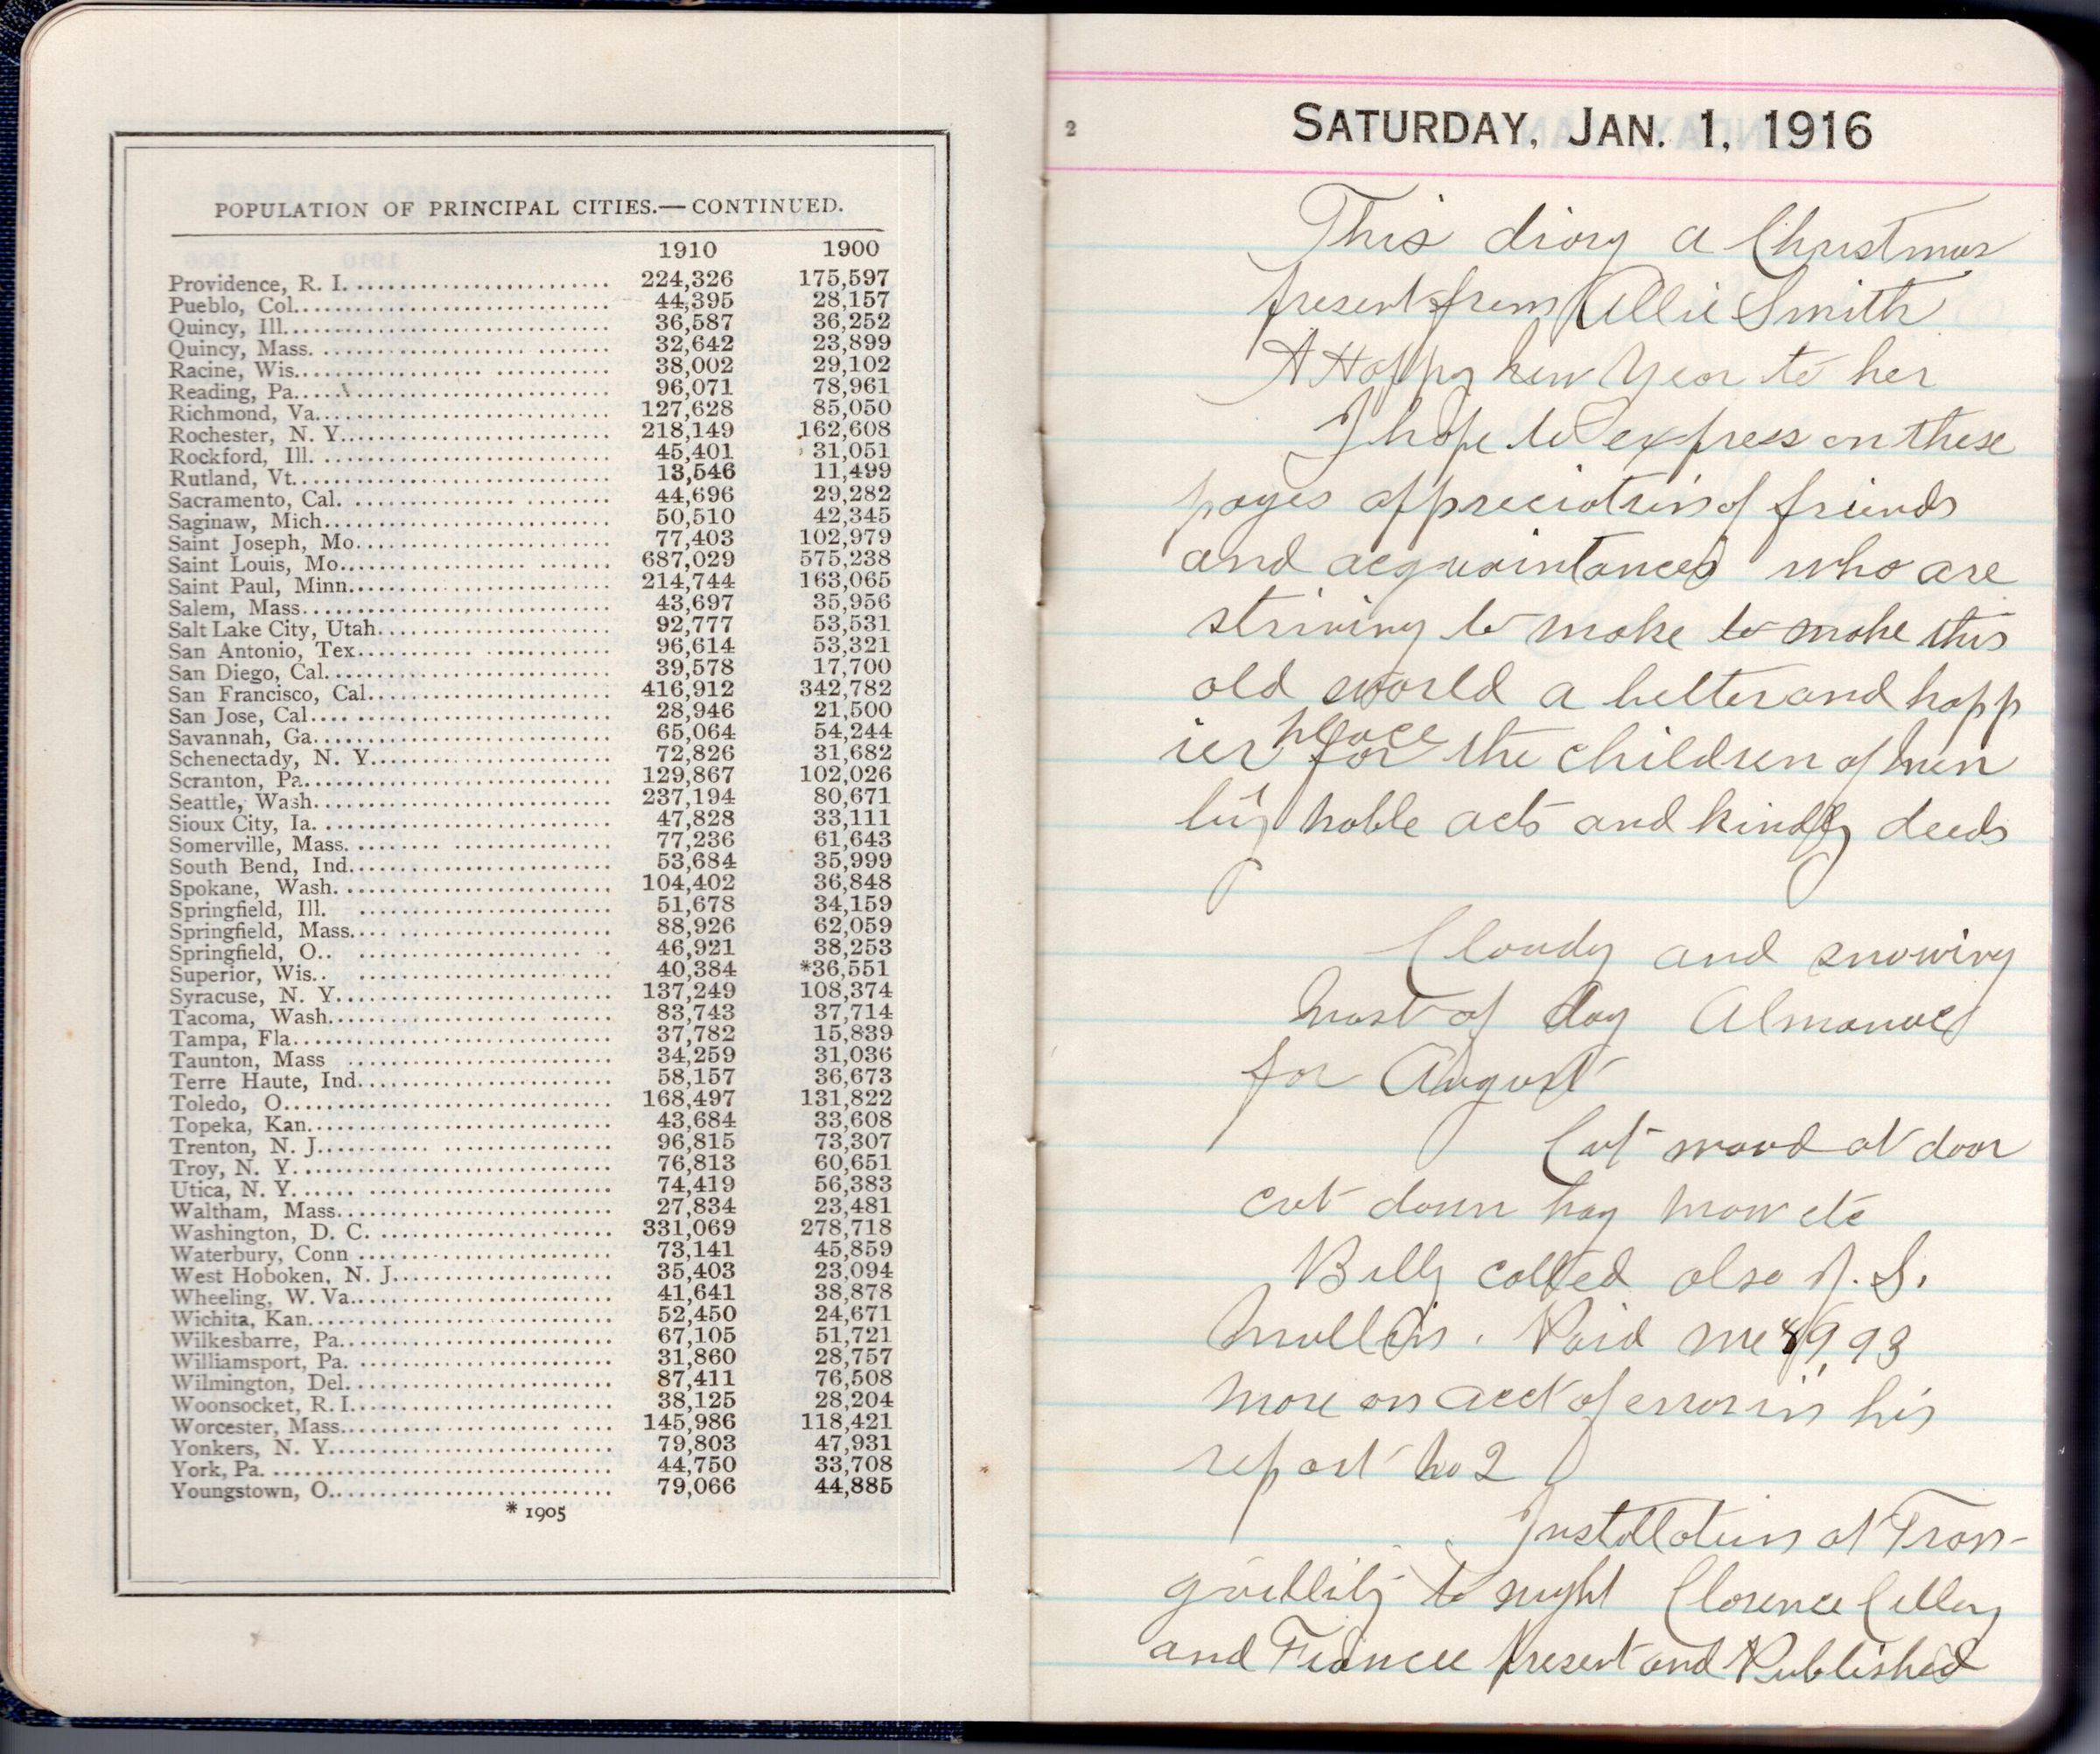 POPULATION OF PRINCIPAL CITIES.—CONTINUED.
1910 1900
Providence, R. I. 224,326 175,597
Pueblo, Col. 44,395 28,157
Quincy, Ill. 36,587 36,252
Quincy, Mass. 32,642 23,899
Racine, Wis. 38,002 29,102
Reading, Pa. 96,071 78,961
Richmond, Va. 127,628 85,050
Rochester, N. Y. 218,149 162,608
Rockford, Ill. 45,401 31,051
Rutland, Vt. 13,546 11,499
Sacramento, Cal. 44,696 29,282
Saginaw, Mich. 50,510 42,345
Saint Joseph, Mo. 77,403 102,979
Saint Louis, Mo. 687,029 575,238
Saint Paul, Minn. 214,744 163,065
Salem, Mass. 43,697 35,956
Salt Lake City, Utah. 92,777 53,531
San Antonio, Tex. 96,614 53,321
San Diego, Cal. 39,578 17,700
San Francisco, Cal. 416,912 342,782
San Jose, Cal. 28,946 21,500
Savannah, Ga. 65,064 54,244
Schenectady, N. Y. 72,826 31,682
Scranton, Pa. 129,867 102,026
Seattle, Wash. 237,194 80,671
Sioux City, Ia. 47,828 33,111
Somerville, Mass. 77,236 61,643
South Bend, Ind. 53,684 35,999
Spokane, Wash. 104,402 36,848
Springfield, Ill. 51,678 34,159
Springfield, Mass. 88,926 62,059
Springfield, O. 46,921 38,253
Superior, Wis. 40,384 *36,551
Syracuse, N. Y. 137,249 108,374
Tacoma, Wash. 83,743 37,714
Tampa, Fla. 37,782 15,839
Taunton, Mass 34,259 31,036
Terre Haute, Ind. 58,157 36,673
Toledo, O. 168,497 131,822
Topeka, Kan. 43,684 33,608
Trenton, N. J. 96,815 73,307
Troy, N. Y. 76,813 60,651
Utica, N. Y. 74,419 56,383
Waltham, Mass. 27,834 23,481
Washington, D. C. 331,069 278,718
Waterbury, Conn 73,141 45,859
West Hoboken, N. J. 35,403 23,094
Wheeling, W. Va. 41,641 38,878
Wichita, Kan. 52,450 24,671
Wilkesbarre, Pa. 67,105 51,721
Williamsport, Pa. 31,860 28,757
Wilmington, Del. 87,411 76,508
Woonsocket, R. I. 38,125 28,204
Worcester, Mass. 145,986 118,421
Yonkers, N. Y. 79,803 47,931
York, Pa. 44,750 33,708
Youngstown, O. 79,066 44,885
* 1905
2
SATURDAY, JAN. 1, 1916
This diary a Christmas
present from Allie Smith
A Happy new Year to her
I hope to express on these
pages appreciation of friends
and acquaintances who are
striving to make to make this
old world a better and happ
ier place for the children of men
by noble acts and kindly deeds
Cloudy and snowing
most of day Almanac
for August
Cut wood at door
cut down hay mow etc
Billy called also S.
Mullin. Paid me 9,93
more on acct of error in his
report No 2
Installation at Tran-
quillity to night Clarence Celley
and Fiancee present and Published